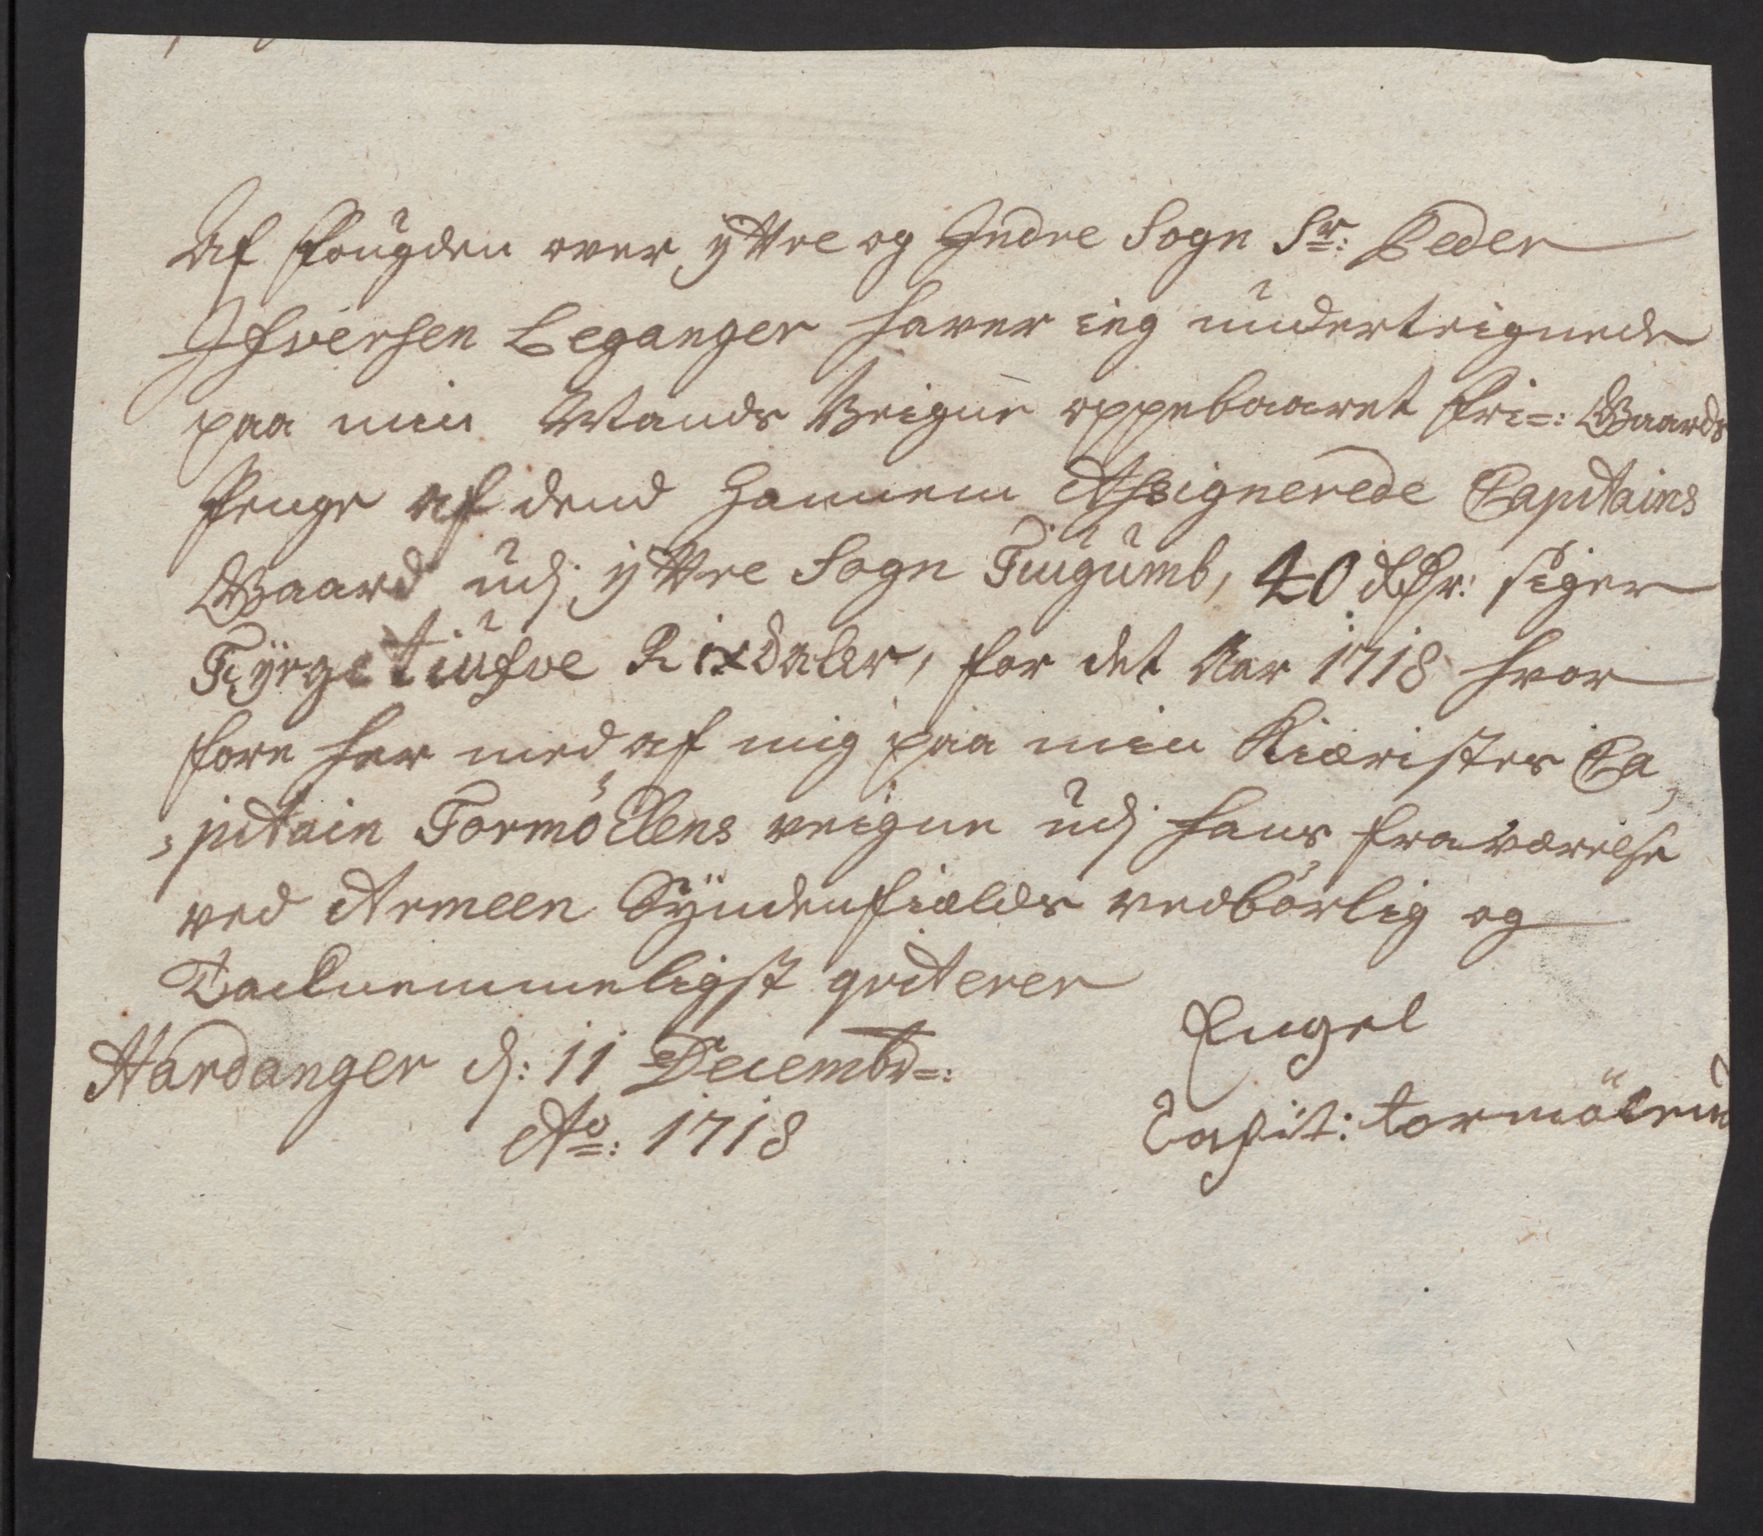 Af Fougden over yttre og Indre Sogn Sr: Peder
Ifversen Leganger haver ieg underteignede
paa min Mands Veigne oppebaaret frie=: Gaards
penge af dend hannem Assignerede Capitains
Gaard udj yttre Sogn Tiugumb, 40 Rdr: siger
Fÿrgetiufve Rixdaler, for det Aar 1718 hvor
fore her med af mig paa min Kiæristes Ca,
,pitain Tormöllens veigne udj hans fraværelse
ved Armeen Sÿndenfields vedbørlig og
Tacknemmeligst qviterer
Hardanger d: 11 Decembr=:
Ao: 1718
Engel
Capit: tormölen